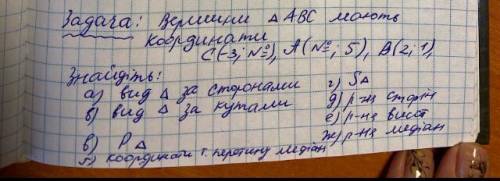 Задача: Вершини △ АВС мають
координати
С(-3; №), А(№; 5), В(2; 1),
Знайдіть:
а) вид △ за сторонами
б) вид △ за кутами
в) Р△
г) S△
д) р-ня сторін
е) р-ня висот
ж) р-ня медіан
координати т. перетину медіан